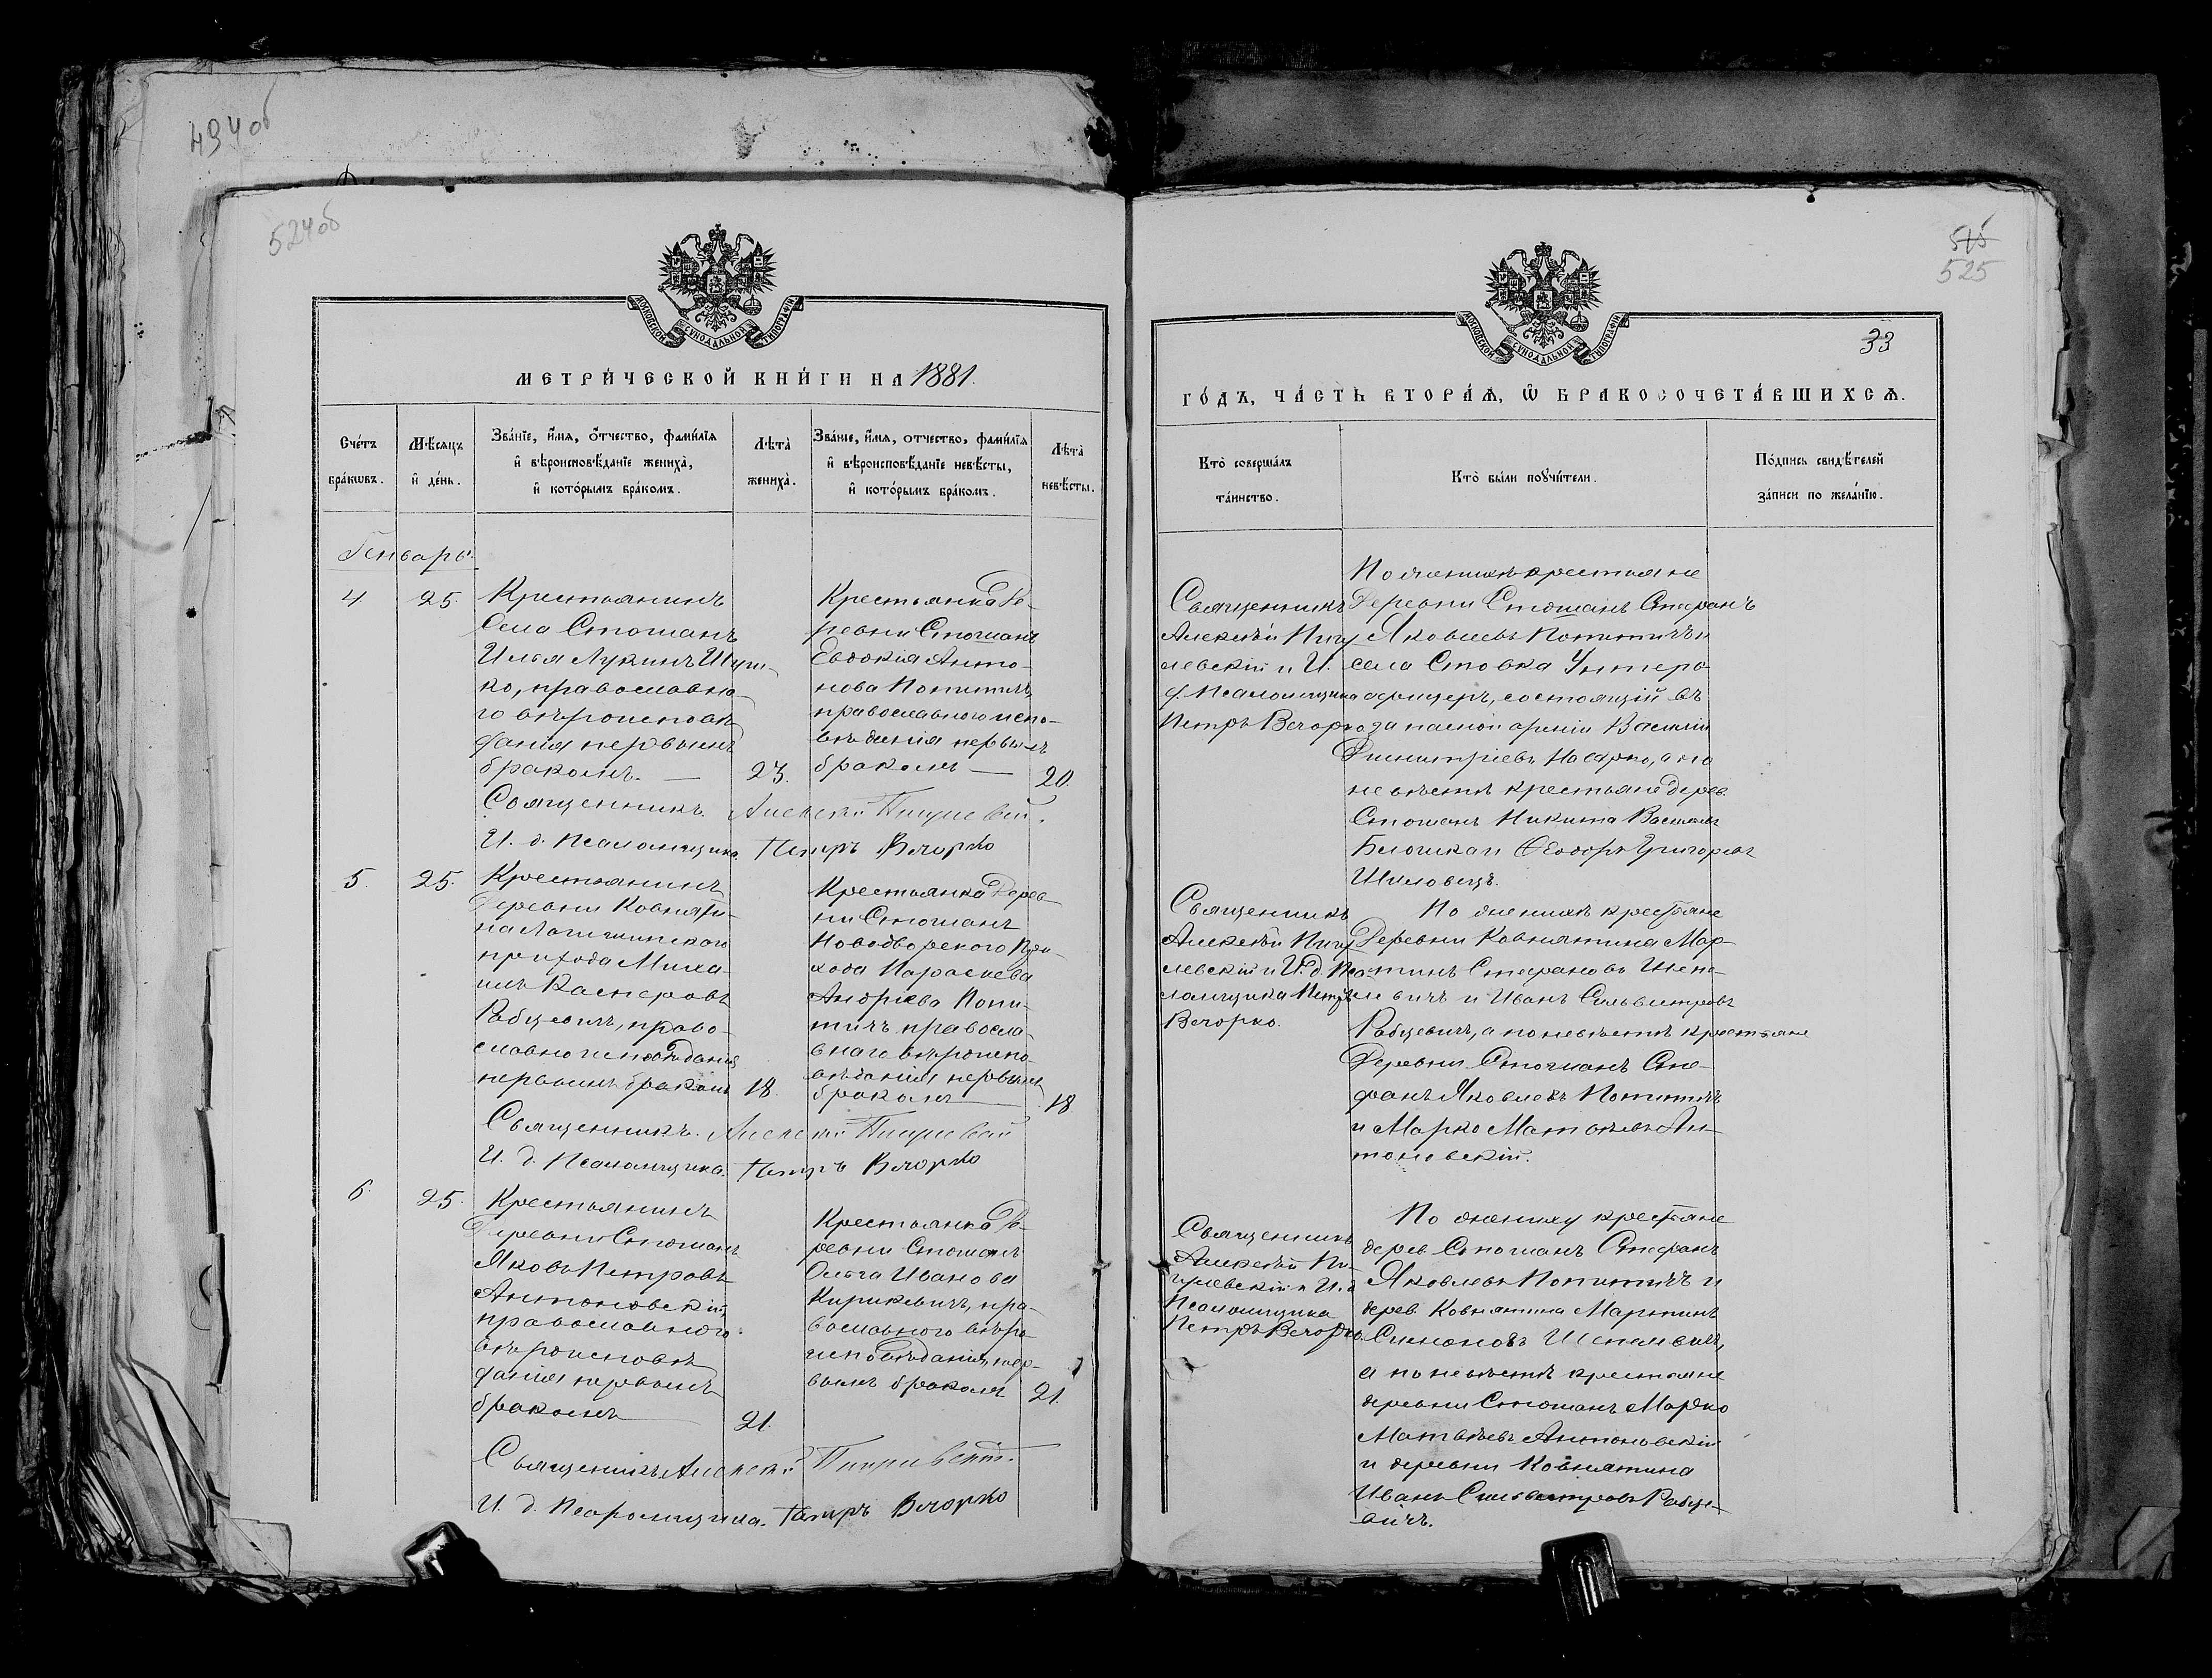 494 об
524 об
МОСКОВСКОЙ СУНОДАЛЬНОЙ ТИПОГРАФІИ
МЕТРИ́ЧЕСКОЙ КНИ́ГИ НА 1881.
Сче́тъ бра́кѡвъ.
Мѣ́сяцъ и҆ де́нь.
Зва́нїе, и҆́мя, о҆́тчество, фами́лїя
и҆ вѣроисповѣ́данїе жениха̀,
и҆ кото́рымъ бра́комъ.
Лѣта̀ жениха̀.
Зва́нїе, и҆́мя, отчество, фами́лїя
и҆ вѣроисповѣ́данїе невѣ́сты,
и҆ кото́рымъ бра́комъ.
Лѣта̀ невѣ́сты.
Генварь.
4
25.
Крестьянинъ
Села Стошанъ
Илья Лукинъ Шуш-
ко, православна-
го вѣроисповѣ-
данія первымъ
бракомъ.
23.
Крестьянка Де-
ревни Стошанъ
Евдокія Анто-
нова Попитичъ
православного испо-
вѣданія первымъ
бракомъ
20.
Священникъ Алексѣй
И. д. Псаломщика Петръ Вечорко
5.
25.
Крестьянинъ
Деревни Ковняти-
на Логишинского
прихода Миха-
илъ Касперовъ
Рабцевичъ, право-
славного исповѣданія
первымъ бракомъ
18.
Крестьянка Дерев-
ни Стошанъ
Новодворского При-
хода Параскева
Андріева Попи-
тичъ правосла-
внаго вѣроиспо-
вѣданія первымъ
бракомъ
18
Священникъ. Алексѣй
И. д. Псаломщика. Петръ Вечорко
6.
25.
Крестьянинъ
Деревни Стошанъ
Яковъ Петровъ
Антоновскій,
православного
вѣроисповѣ-
данія первымъ
бракомъ
21.
Крестьянка Де-
ревни Стошанъ
Ольга Иванова
Кирикевичъ, пра-
вославного вѣро-
исповѣданія, пер-
вымъ бракомъ
21.
Священникъ Алексѣй
И. д. Псаломщика. Петръ Вечорко
525
МОСКОВСКОЙ СУНОДАЛЬНОЙ ТИПОГРАФІИ
33
ГО́ДЪ, ЧА́СТЬ ВТОРА́Я, Ѡ҆ БРАКОСОЧЕТА́ВШИХСЯ.
Кто̀ соверша́лъ
та́инство.
Кто̀ бы́ли поꙋчи́тели.
По́дпись свидѣ́телей
за́писи по жела́нїю.
Священникъ
Алексѣй Пигу-
левскій и И.
д. Псаломщика
Петръ Вечорко
По женихѣ крестьяне
Деревни Стошанъ Стефанъ
Яковлевъ Попитичъ и
села Ставка Унтеръ
офицеръ, состоящій въ
запасной арміи Василій
Димитріевъ а по
невѣстѣ крестьяне дерев.
Стошанъ Никита
и Ѳеодоръ Григорьевъ
Шиловецъ.
Священникъ
Алексѣй Пигу-
левскій и И. д. Пса-
ломщика Петръ
Вечорко.
По женихѣ крестьяне
Деревни Ковнятина Мар-
тинъ Стефановъ Шепе-
левичъ и Иванъ Сильвестровъ
Рабцевичъ, а по невѣстѣ крестьяне
Деревни Стошанъ Сте-
фанъ Яковлевъ Попитичъ
и Марко Матвѣевъ Ан-
тоновскій.
Священникъ
Алексѣй Пи-
гулевскій и И. д
Псаломщика
Петръ Вечорко.
По жениху крестьяне
дерев. Стошанъ Стефанъ
Яковлевъ Попитичъ и
дерев. Ковнятина Мартинъ
Симоновъ
а по невѣстѣ крестьяне
деревни Стошанъ Марко
Матвѣевъ Антоновскій
и деревни Ковнятина
Иванъ Сильвестровъ Рабце-
вичъ.